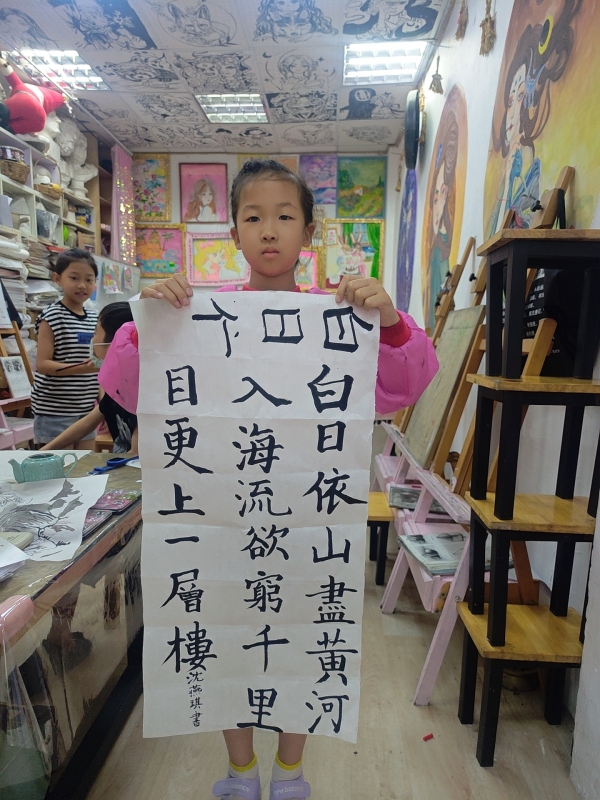 白日
白日依山盡黄河
入海流欲窮千里
目更上一層樓
沈燕琪書